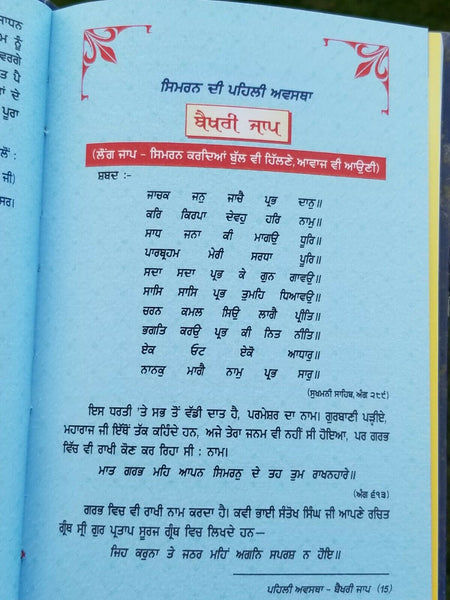 ਸਾਧਨ
ਮ ਨੂੰ
ਵਰਗੇ
ਤ ਪੈ
ਾਂ ਦੇ
ਪੂਰਾ
ਲੋਂ :
ਜੀ)
ਸਰ।
ਸਿਮਰਨ ਦੀ ਪਹਿਲੀ ਅਵਸਥਾ
ਬੈਖਰੀ ਜਾਪ
(ਲੌਂਗ ਜਾਪ - ਸਿਮਰਨ ਕਰਦਿਆਂ ਬੁੱਲ ਵੀ ਹਿੱਲਣੇ, ਆਵਾਜ਼ ਵੀ ਆਉਣੀ)
ਸ਼ਬਦ :-
ਜਾਚਕ ਜਨੁ ਜਾਚੈ ਪ੍ਰਭ ਦਾਨੁ॥
ਕਰਿ ਕਿਰਪਾ ਦੇਵਹੁ ਹਰਿ ਨਾਮੁ॥
ਸਾਧ ਜਨਾ ਕੀ ਮਾਗਉ ਧੂਰਿ॥
ਪਾਰਬ੍ਰਹਮ ਮੇਰੀ ਸਰਧਾ ਪੂਰਿ॥
ਸਦਾ ਸਦਾ ਪ੍ਰਭ ਕੇ ਗੁਨ ਗਾਵਉ॥
ਸਾਸਿ ਸਾਸਿ ਪ੍ਰਭ ਤੁਮਹਿ ਧਿਆਵਉ॥
ਚਰਨ ਕਮਲ ਸਿਉ ਲਾਗੈ ਪ੍ਰੀਤਿ॥
ਭਗਤਿ ਕਰਉ ਪ੍ਰਭ ਕੀ ਨਿਤ ਨੀਤਿ॥
ਏਕ ਓਟ ਏਕੋ ਆਧਾਰੁ॥
ਨਾਨਕੁ ਮਾਗੈ ਨਾਮੁ ਪ੍ਰਭ ਸਾਰੁ॥
(ਸੁਖਮਨੀ ਸਾਹਿਬ, ਅੰਗ ੨੮੯)
ਇਸ ਧਰਤੀ 'ਤੇ ਸਭ ਤੋਂ ਵੱਡੀ ਦਾਤ ਹੈ, ਪਰਮੇਸ਼ਰ ਦਾ ਨਾਮ। ਗੁਰਬਾਣੀ ਪੜ੍ਹੀਏ,
ਮਹਾਰਾਜ ਜੀ ਇੱਥੋਂ ਤੱਕ ਕਹਿੰਦੇ ਹਨ, ਅਜੇ ਤੇਰਾ ਜਨਮ ਵੀ ਨਹੀਂ ਸੀ ਹੋਇਆ, ਪਰ ਗਰਭ
ਵਿੱਚ ਵੀ ਰਾਖੀ ਕੌਣ ਕਰ ਰਿਹਾ ਸੀ : ਨਾਮ।
ਮਾਤ ਗਰਭ ਮਹਿ ਆਪਨ ਸਿਮਰਨੁ ਦੇ ਤਹ ਤੁਮ ਰਾਖਨਹਾਰੇ॥
(ਅੰਗ ੬੧੩)
ਗਰਭ ਵਿਚ ਵੀ ਰਾਖੀ ਨਾਮ ਕਰਦਾ ਹੈ। ਕਵੀ ਭਾਈ ਸੰਤੋਖ ਸਿੰਘ ਜੀ ਆਪਣੇ ਰਚਿਤ
ਗ੍ਰੰਥ ਸ੍ਰੀ ਗੁਰ ਪ੍ਰਤਾਪ ਸੂਰਜ ਗ੍ਰੰਥ ਵਿਚ ਲਿਖਦੇ ਹਨ—
ਜਿਹ ਕਰੁਨਾ ਤੇ ਜਠਰ ਮਹਿਂ ਅਗਨਿ ਸਪਰਸ਼ ਨ ਹੋਇ॥
ਪਹਿਲੀ ਅਵਸਥਾ - ਬੈਖਰੀ ਜਾਪ (15)